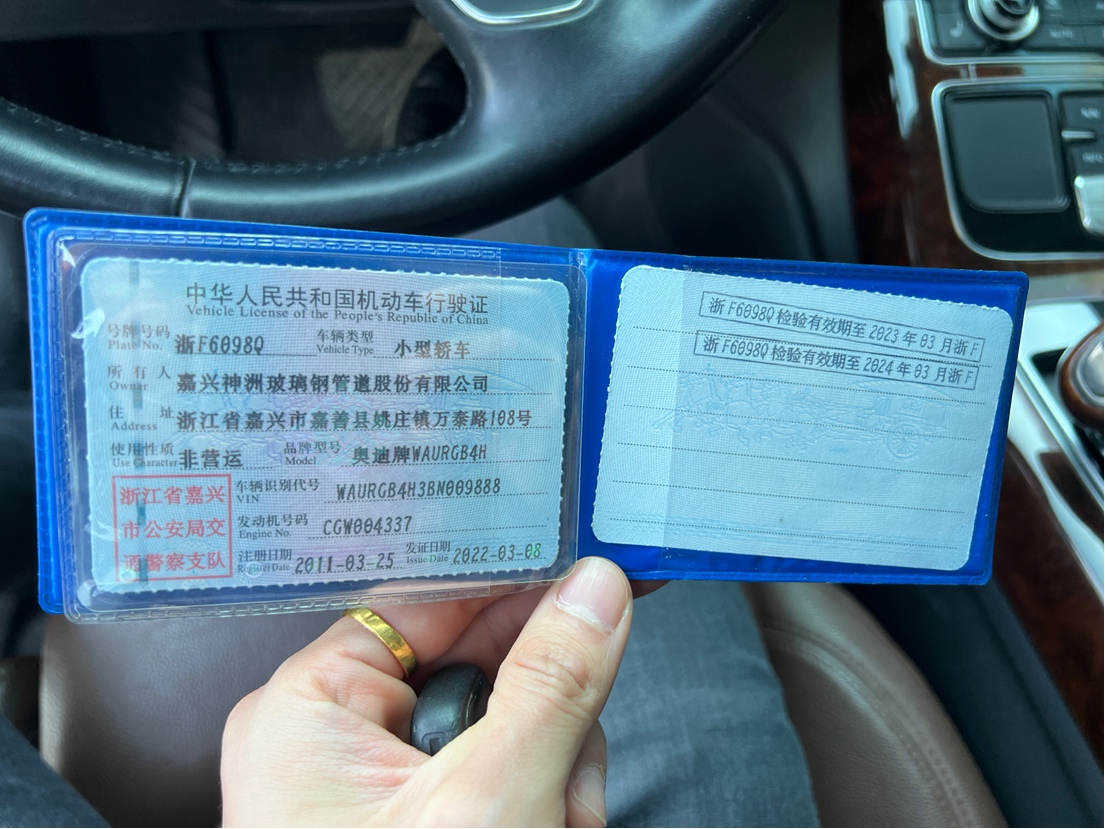 中华人民共和国机动车行驶证
Vehicle License of the People's Republic of China
号牌号码 浙F6098Q 车辆类型 小型轿车
Plate No. Vehicle Type
所有人 嘉兴神洲玻璃钢管道股份有限公司
Owner
住址 浙江省嘉兴市嘉善县姚庄镇万泰路108号
Address
使用性质 非营运 品牌型号 奥迪牌WAURGB4H
Use Character Model
浙江省嘉兴
市公安局交
通警察支队
车辆识别代号 WAURGB4H3BN009888
VIN
发动机号码 CGW004337
Engine No.
注册日期 2011-03-25 发证日期 2022-03-08
Register Date Issue Date
浙F6098Q检验有效期至2023年03月浙F
浙F6098Q检验有效期至2024年03月浙F
AUTO